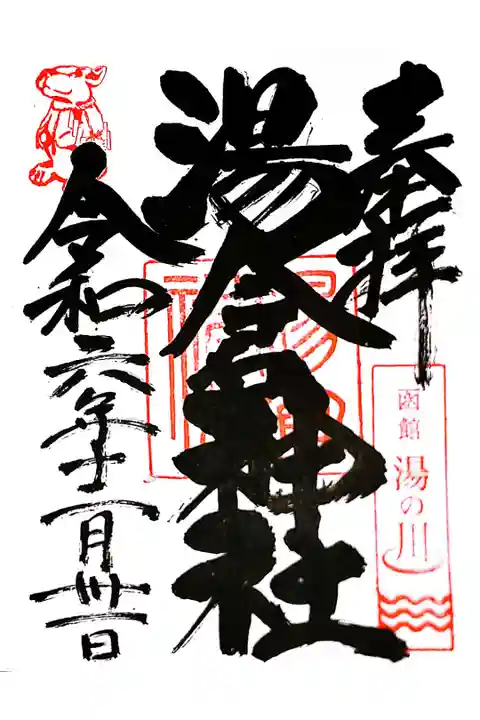 奉拝
函館 湯の川
湯倉神社
令和六年十一月卅日